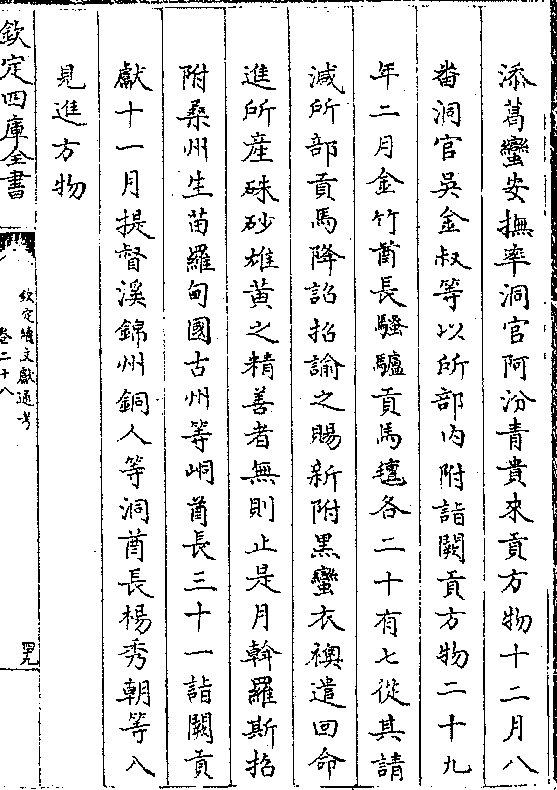 添葛蠻安撫率洞官阿汾青貴來貢方物十二月八
畨洞官吳金叔等以所部内附詣闕貢方物二十九
年二月金竹酋長騷驢貢馬氊各二十有七從其請
減所部貢馬降詔招諭之賜新附黒蠻衣襖遣回命
進所産硃砂雄黄之精善者無則止是月斡羅斯招
附桑州生苗羅甸國古州等峒酋長三十一詣闕貢
獻十一月提督溪錦州銅人等洞酋長楊秀朝等八
見進方物
欽定四庫全書
欽定續文獻通考
卷二十八
罕九